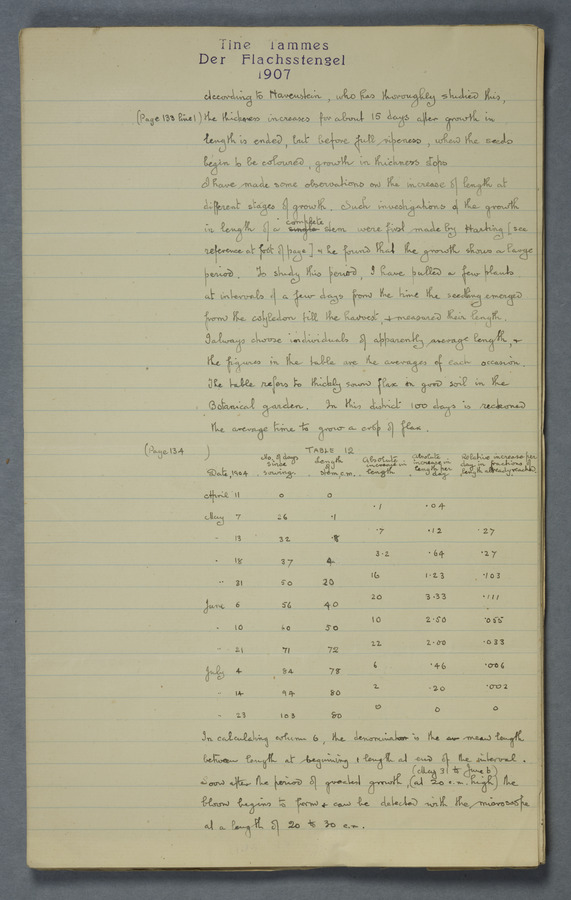 Tine Tammes
Der Flachsstengel
1907
According to Havenstein, who has thoroughly studied this,
(Page 133 line 1) the thickness increases for about 15 days after growth in
length is ended, but before full ripeness, when the seeds
begin to be coloured, growth in thickness stops
I have made some observations on the increase of length at
different stages of growth. Such investigations of the growth
in length of a single complete stem were first made by Harting [see
reference at foot of page] & he found that the growth shows a large
period. To study this period, I have pulled a few plants
at intervals of a few days from the time the seedling emerged
from the cotyledon till the harvest, & measured their length.
I always choose individuals of apparently average length, &
the figures in the table are the averages of each occasion.
The table refers to thickly sown flax on good soil in the
Botanical garden. In this district 100 days is reckoned
the average time to grow a crop of flax.
(Page 134 ) TABLE 12
Date, 1904 No. of days since sowing Length of stem, c.m. Absolute increase in length Absolute increase in length per day Relative increase per day in fractions of length already reached
April 11 0 0
.1 .04
May 7 26 .1
.7 .12 .27
" 13 32 .8
3.2 .64 .27
" 18 37 4
16 1.23 .103
" 31 50 20
20 3.33 .111
June 6 56 40
10 2.50 .055
" 10 60 50
22 2.00 .033
" 21 71 72
6 .46 .006
July 4 84 78
2 .20 .002
" 14 94 80
0 0 0
" 23 103 80
In calculating column 6, the denominator is the mean length
between length at beginning & length at end of the interval.
(May 31 to June 6)
Soon after the period of greatest growth, (at 20 c.m. high) the
bloom begins to form & can be detected with the microscope
at a length of 20 to 30 c.m.